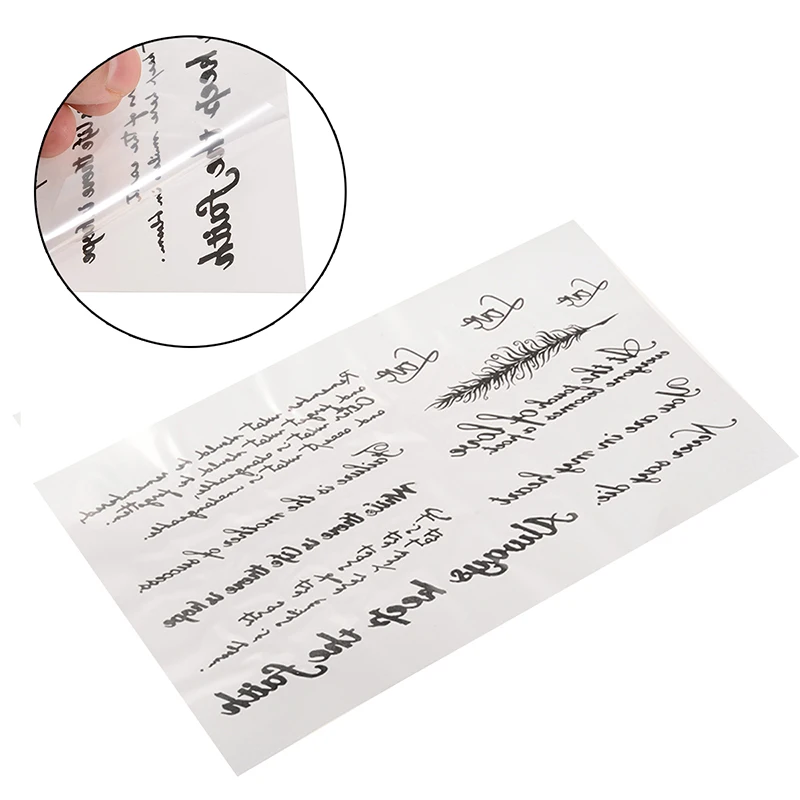 keep the Faith
Love
Love
Love
Remember what should be remembered,
and forget what should be forgotten.
Alter what is changeable,
and accept what is unchangeable.
Failure is the mother of success.
While there is life there is hope
It is the tears of the earth
that keep here smiles in bloom.
At the touch of love
everyone becomes a poet.
You are in my heart
Never say die.
Always keep the faith.